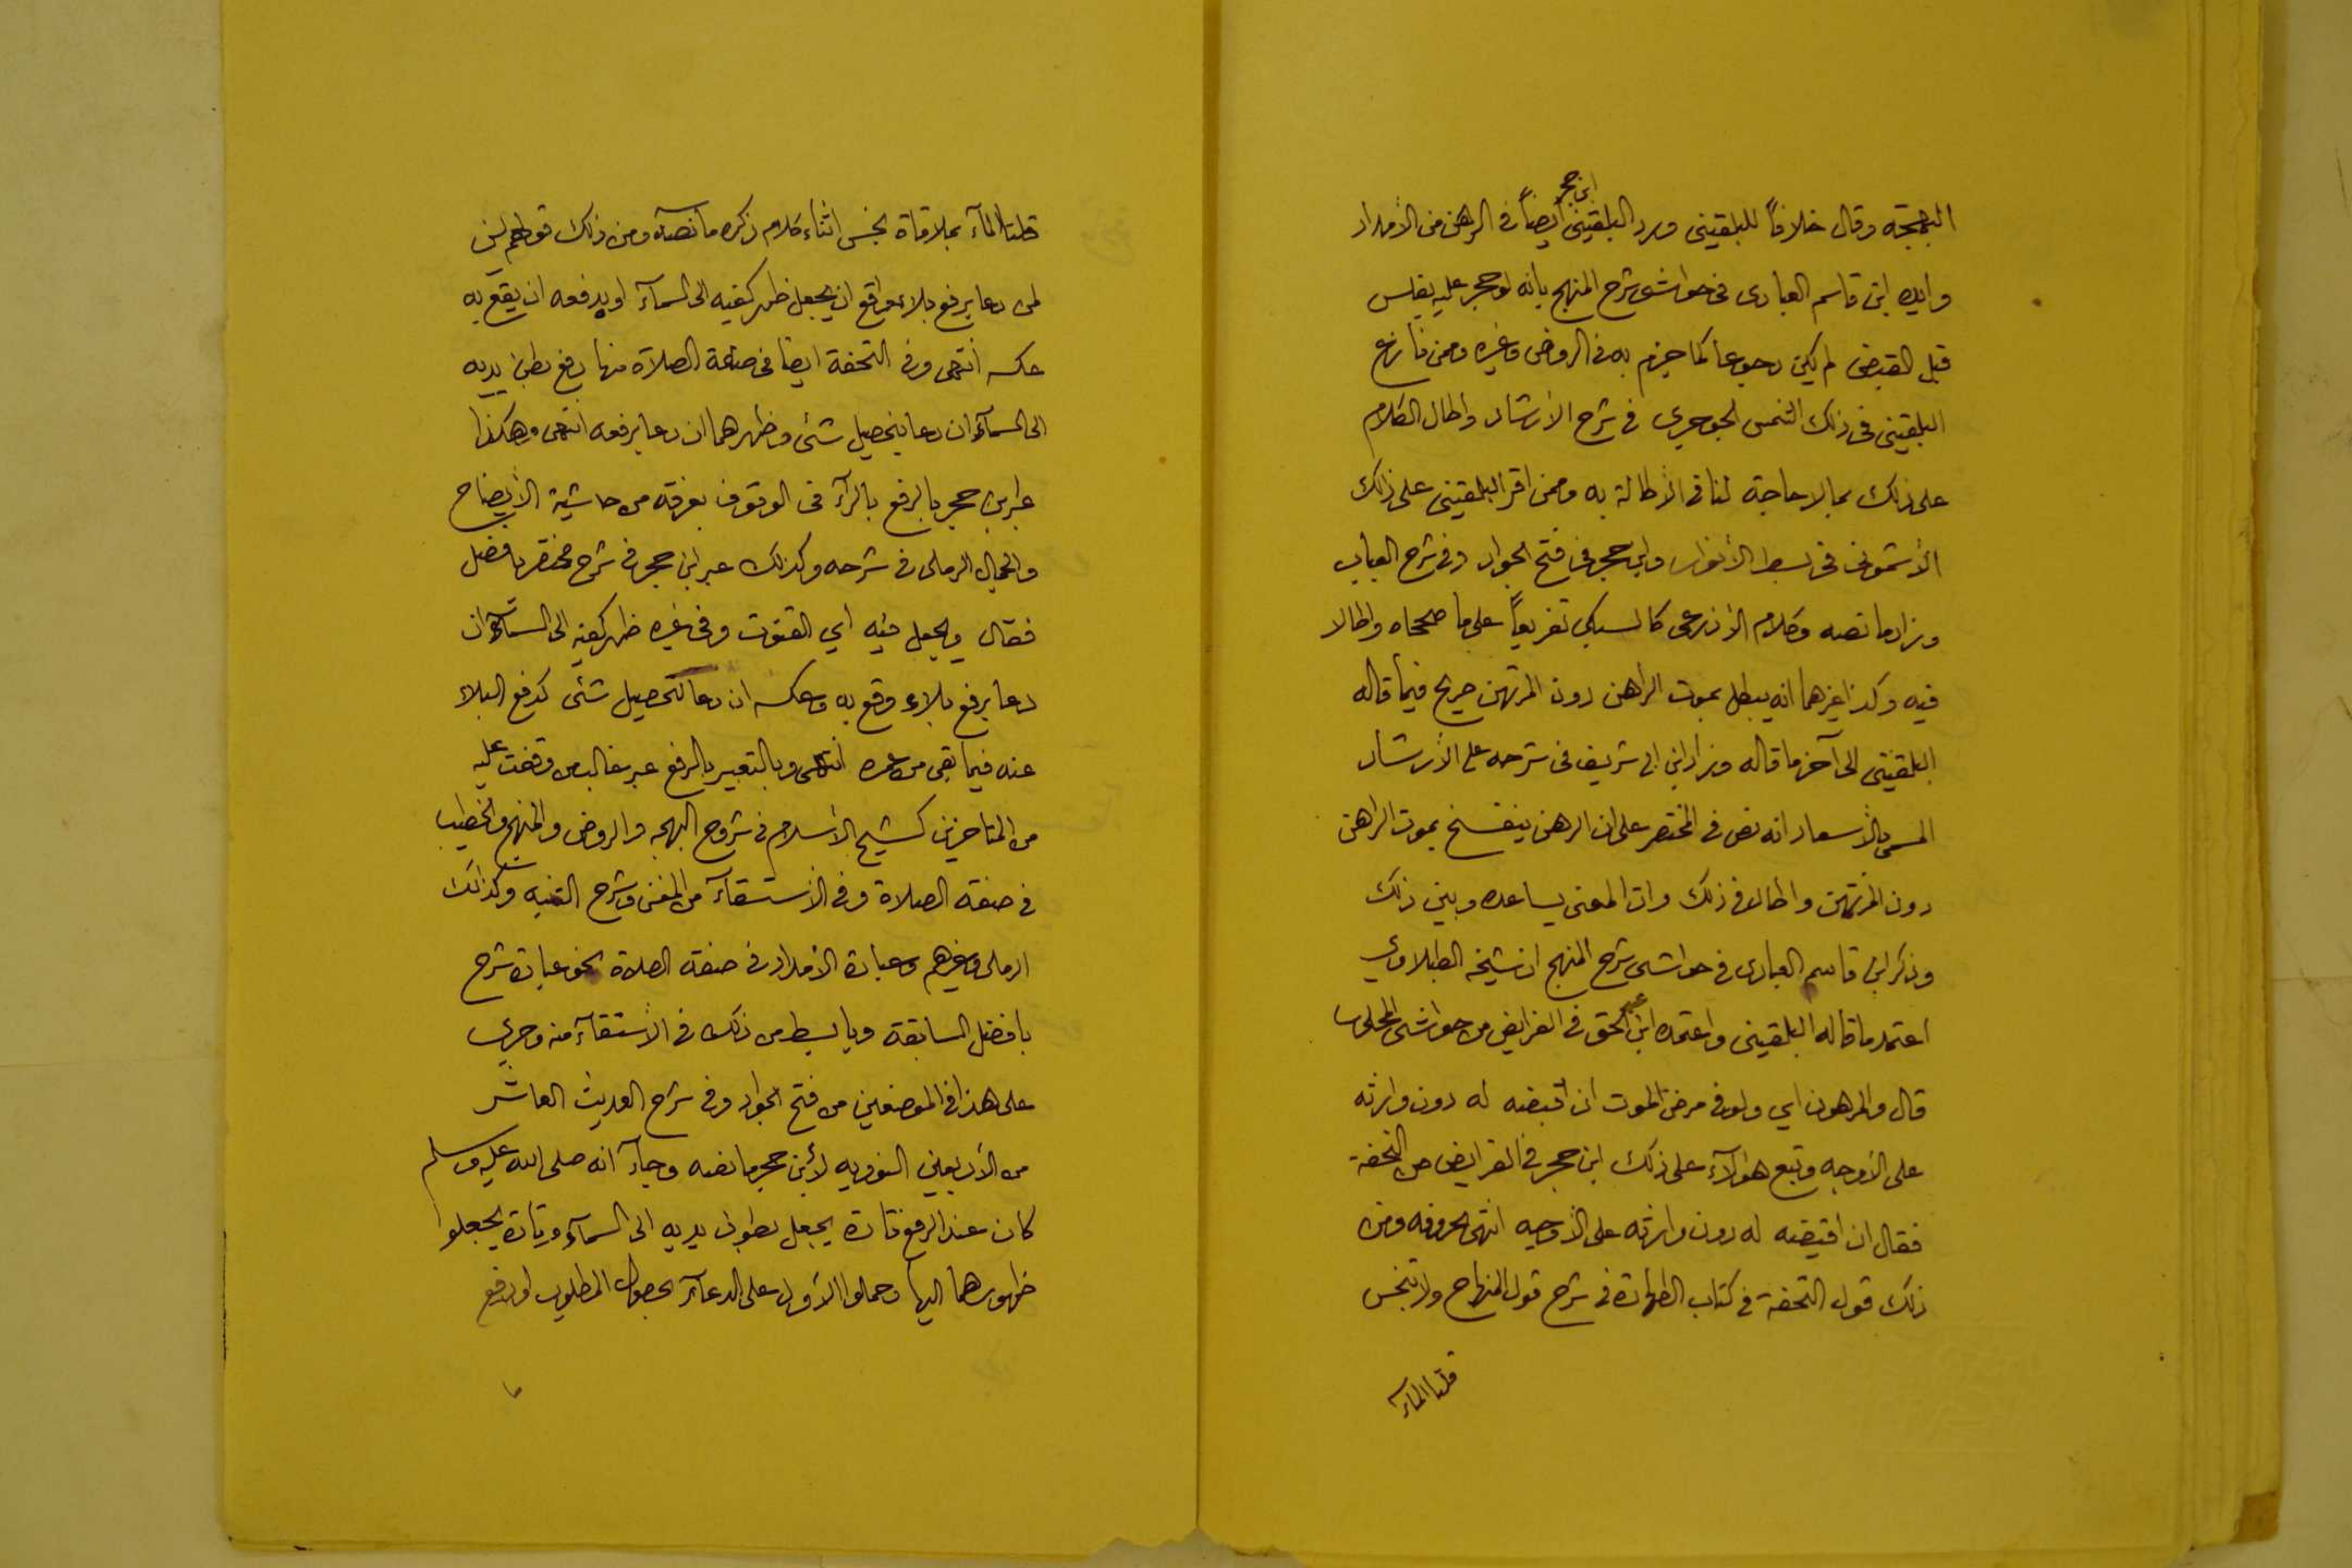 البهجة وقال خلافاً للبلقيني ورد البلقيني ابن حجر أيضاً في الرهن من الأمداد
وايده ابن قاسم العبادي في حواشي شرح المنهج بانه لو حجر عليه بفلس
قبل القبض لم يكن رجوعا كما جزم به في الروض وغيره وممن نازع
البلقيني في ذلك الشمس الجوجري في شرح الأرشاد واطال الكلام
على ذلك بما لا حاجة لنا في الأطالة به وممن اقر البلقيني على ذلك
الأشموني في بسط الأنوار وابن حجر في فتح الجواد وفي شرح العباب
وزاد ما نصه وكلام الأذرعي كالسبكي تفريعاً على ما صححاه واطالا
فيه وكذا غيرهما انه يبطل بموت الراهن دون المرتهن صريح فيما قاله
البلقيني الى آخر ما قاله وزاد ابن ابي شريف في شرحه على الأرشاد
المسمى بالأسعاد انه نص في المختصر على ان الرهن ينفسخ بموت الراهن
دون المرتهن واطال في ذلك وان المعنى يساعده وبين ذلك
وذكر ابن قاسم العبادي في حواشي شرح المنهج ان شيخه الطبلاوي
اعتمد ما قاله البلقيني واعتمده ابن عبد الحق في الفرايض من حواشي المحلي
قال والمرهون اي ولو في مرض الموت ان اقبضه له دون وارثه
على الأوجه وتبع هؤلآء على ذلك ابن حجر في الفرايض من التحفة
فقال ان اقبضه له دون وارثه على الأوجه انتهى بحروفه ومن
ذلك قول التحفة في كتاب الطهارة في شرح قول المنهاج ولا تنجس
قلتا المآء
قلتا المآء بملاقاة نجس اثناء كلام ذكره ما نصه ومن ذلك قولهم يسن
لمن دعا برفع بلاء واقع ان يجعل ظهر كفيه الى السمآء او بدفعه ان يقع به
عكسه انتهى وفي التحفة ايضا في صفة الصلاة منها رفع بطن يديه
الى السمآء ان دعا بتحصيل شئ وظهرهما ان دعا برفعه انتهى وهكذا
عبر ابن حجر بالرفع بالرآء في الوقوف بعرفة من حاشية الأيضاح
والجمال الرملي في شرحه وكذلك عبر ابن حجر في شرح مختصر بافضل
فقال ويجعل فيه اي القنوت وفي غيره ظهر كفيه الى السمآء ان
دعا برفع بلاء وقع به وعكسه ان دعا لتحصيل شئ كدفع البلاء
عنه فيما بقي من عمره انتهى وبالتعبير بالرفع عبر غالب من وقفت عليه
من المتاخرين كشيخ الأسلام في شروح البهجه والروض والمنهج والخطيب
في صفة الصلاة وفي الأستسقآء من المغني وشرح التنبيه وكذلك
الرملي وغيرهم وعبارة الأمداد في صفة الصلاة نحو عبارة شرح
بافضل السابقة وبابسط من ذلك في الأستسقآء منه وجرى
على هذا في الموضعين من فتح الجواد وفي شرح الحديث العاشر
من الأربعين النوويه لأبن حجر ما نصه وجآء انه صلى الله عليه وسلم
كان عند الرفع تارة يجعل بطون يديه الى السمآء وتارة يجعل
ظهورهما اليها وحملوا الأول على الدعآء بحصول المطلوب او دفع